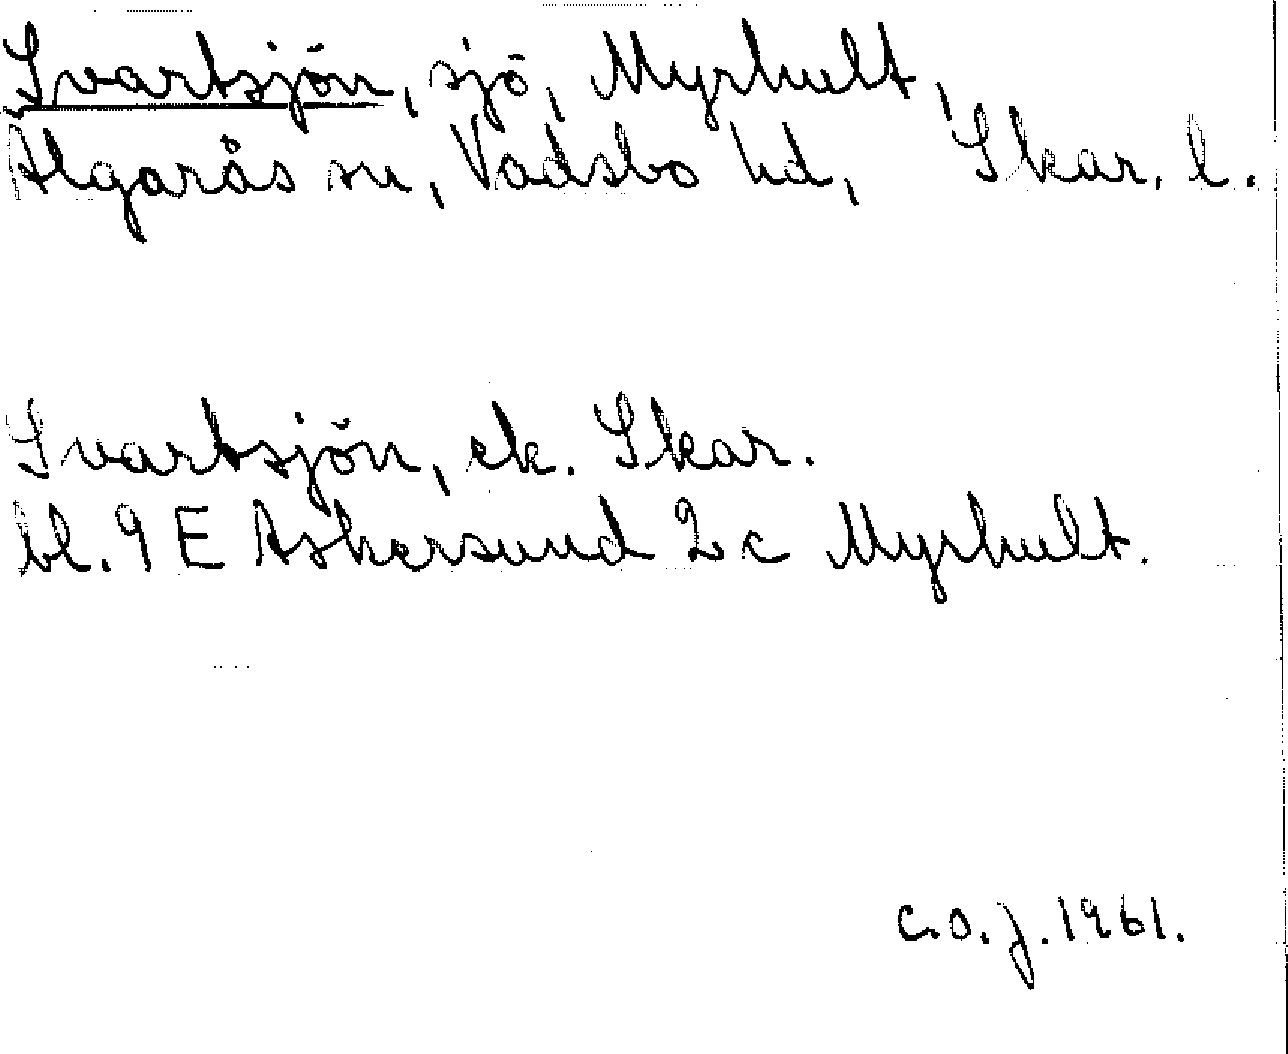 Svartsjön, sjö, Myrhult,
Algarås sn, Vadsbo hd, Skar. l.
Svartsjön, ek. Skar.
bl. 9 E Askersund 2 c Myrhult.
C.O.J. 1961.